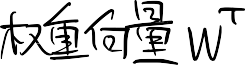 权重向量 W^T